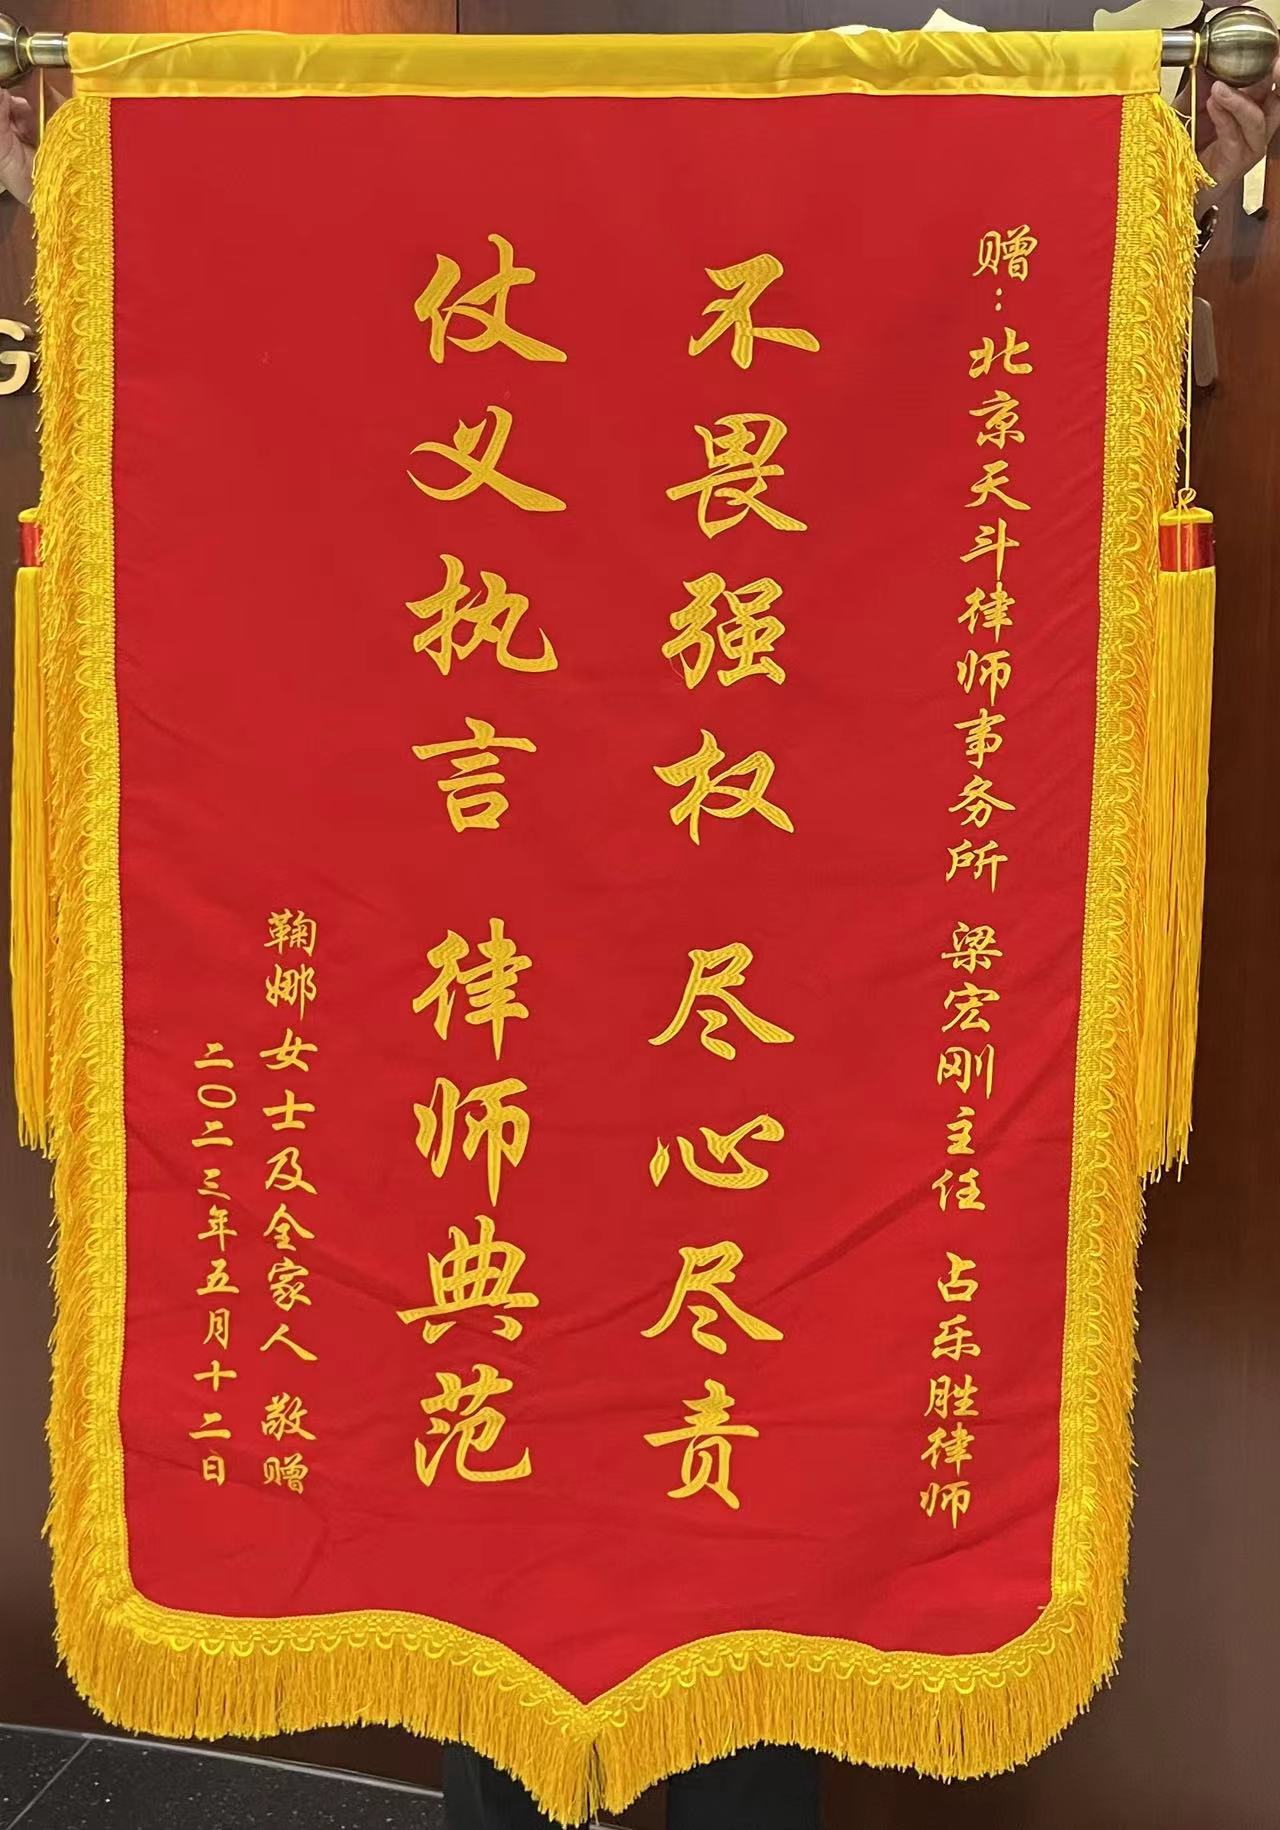 赠：北京天斗律师事务所 梁宏刚主任 占乐胜律师
不畏强权 尽心尽责
仗义执言 律师典范
鞠娜女士及全家人 敬赠
二〇二三年五月十二日
G